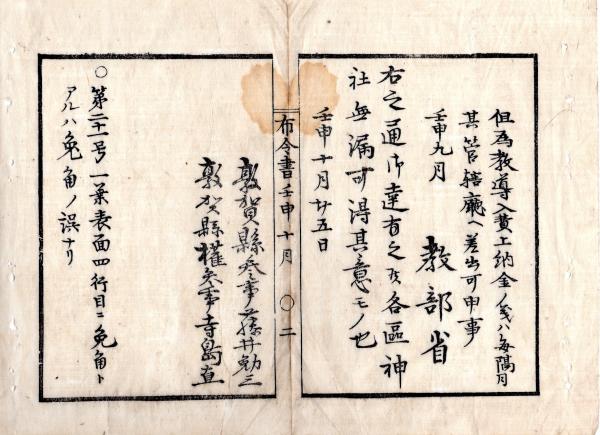 但為教導入費上納金ノ義ハ毎隔月
其管轄廳ヘ差出可申事
壬申九月
教部省
右之通御達有之候各區神
社無漏可得其意モノ也
壬申十月廿五日
布令書壬申十月 〇二
敦賀縣參事藤井勉三
敦賀縣權參事寺島直
〇第二十一号一葉表面四行目ニ兔角ト
アルハ兔角ノ誤ナリ